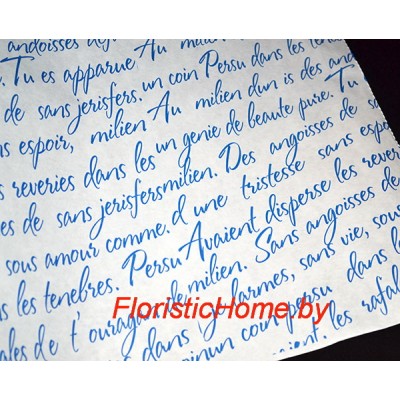 andoisses
Tu es apparue Au milieu
de sans jerisfers. un coin Persu dans les
espoir, milien Au milien dun is des
reveries dans les un genie de beaute pure. Tu
es de sans jerisfersmilien. Des angoisses de
sous amour comme. d une tristesse sans espo
s les tenebres. Persu Avaient disperse les rever
ales de t'ouragan. de milien. Sans angoisses de
dans larmes, sans vie, sous
coin persu dans l
les rafal
FloristicHome.by